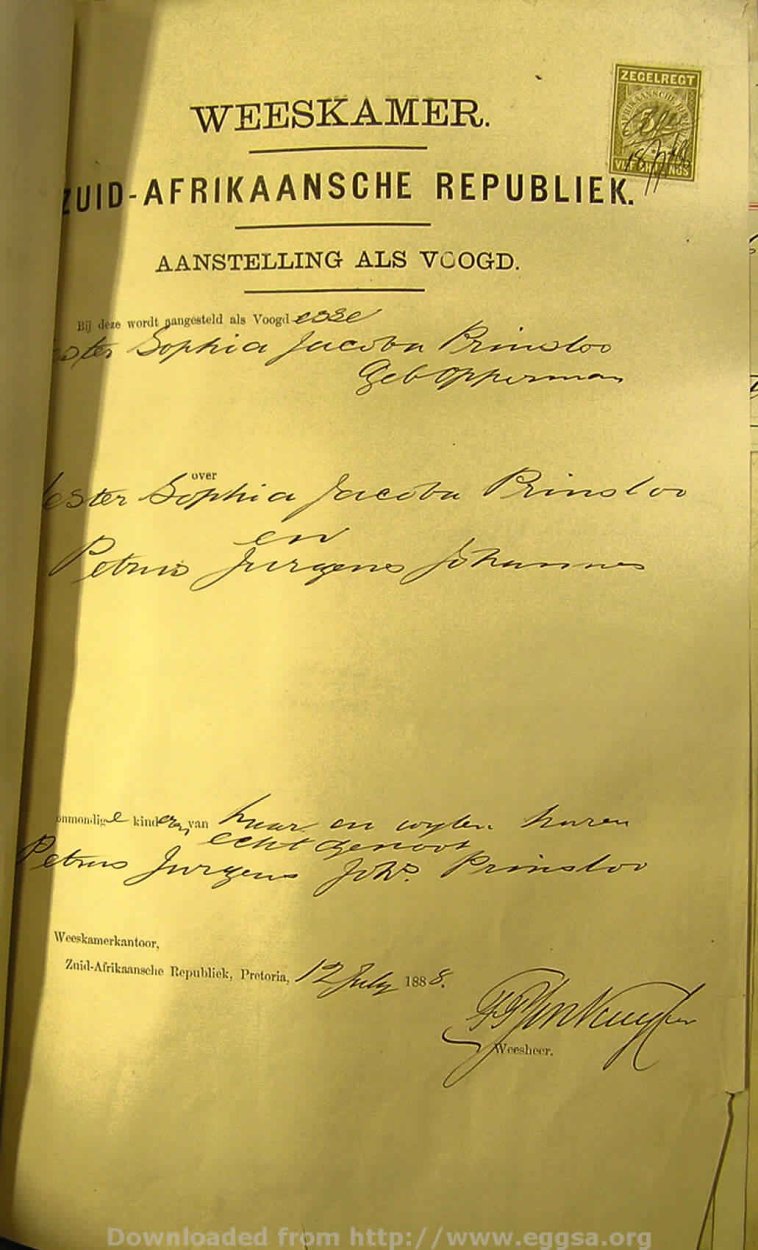 ZEGELREGT
WEESKAMER.
ZUID-AFRIKAANSCHE REPUBLIEK.
AANSTELLING ALS VOOGD.
Bij deze wordt aangesteld als Voogd esse
Hester Sophia Jacoba Prinsloo
Geb Opperman
over
Hester Sophia Jacoba Prinsloo
en
Petrus Jurgens Johannes
onmondige kinderen van haar en wylen haren
echtgenoot
Petrus Jurgens Johs. Prinsloo
Weeskamerkantoor,
Zuid-Afrikaansche Republiek, Pretoria, 12 July 1888.
Weesheer.
Downloaded from http://www.eggsa.org